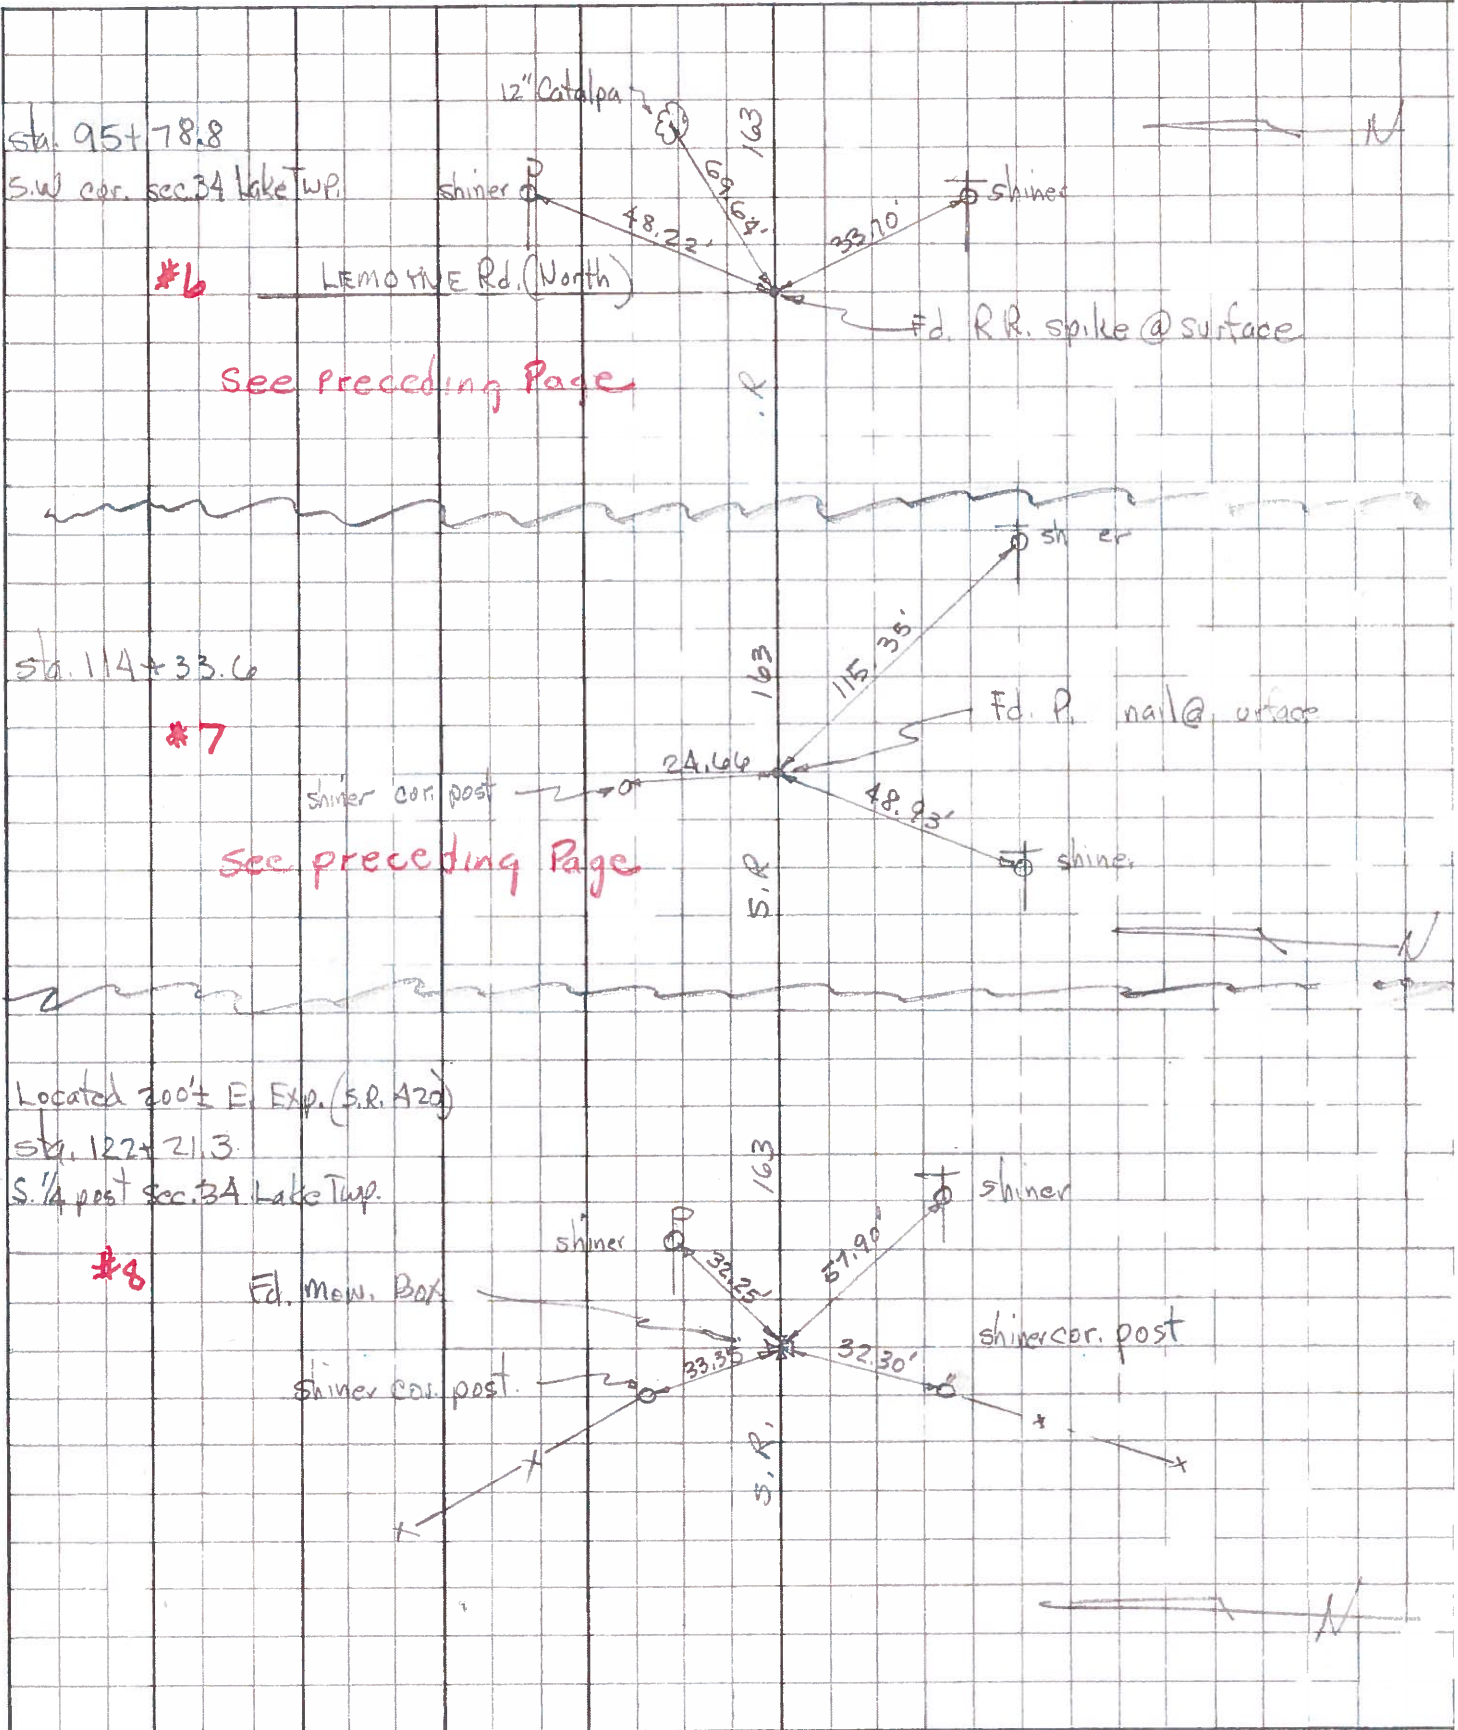 12" Catalpa
163
N
sta. 95+78.8
S.W cor. sec. 34 Lake Twp.
shiner
shiner
48.22'
33.70'
#6
LEMOYNE Rd. (North)
Fd. R.R. spike @ surface
See Preceding Page
.R
sh er
sta. 114+33.6
163
115.35'
#7
Fd. P. nail @ urface
24.66
shiner cor. post
48.93'
See preceding Page
S.R
shiner
N
Located 200'± E. Exp. (S.R. 420)
sta. 122+21.3
S. 1/4 post Sec. 34 Lake Twp.
163
shiner
shiner
32.25'
57.90'
#8
Fd. Mon. Box
shiner cor. post
33.35'
32.30'
shiner cor. post
S.R.
N